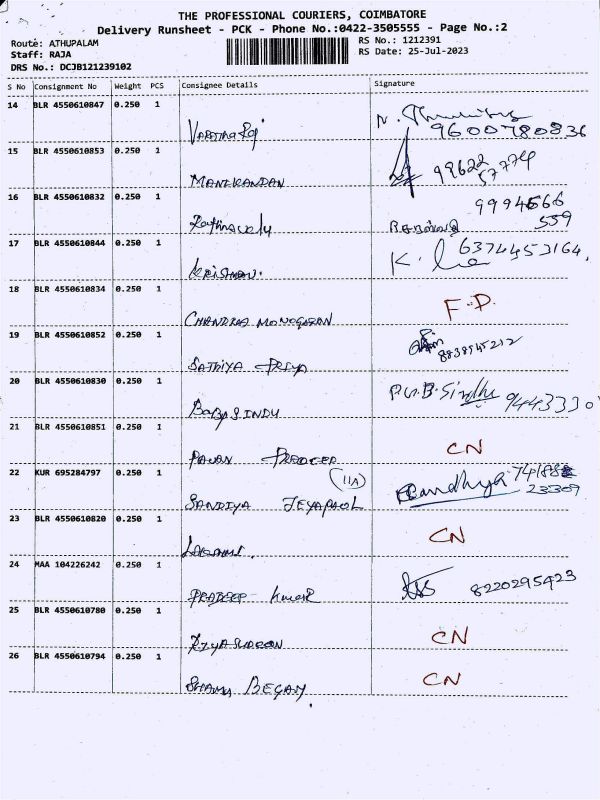 THE PROFESSIONAL COURIERS, COIMBATORE
Delivery Runsheet - PCK - Phone No.:0422-3505555 - Page No.:2
Route: ATHUPALAM
Staff: RAJA
DRS No.: DCJB121239102
RS No.: 1212391
RS Date: 25-Jul-2023
S No Consignment No Weight PCS Consignee Details Signature
14 BLR 4550610847 0.250 1
9600780836
15 BLR 4550610853 0.250 1
MANIKANDAN 99622
57774
16 BLR 4550610832 0.250 1
9994566
559
17 BLR 4550610844 0.250 1
KRISHNAN. K. 6374453164,
18 BLR 4550610834 0.250 1
CHANDRA MONOGARAN F.D.
19 BLR 4550610852 0.250 1
SATHIYA PRIYA 8838945212
20 BLR 4550610830 0.250 1
BABA SINDU P.G.B. Sindhu 9443330
21 BLR 4550610851 0.250 1
PAVAN PRADEEP CN
22 KUR 695284797 0.250 1
(11A)
SANDIYA JEYAPAUL Sandhya 74188
23309
23 BLR 4550610820 0.250 1
LAKSHMI. CN
24 MAA 104226242 0.250 1
PRADEEP KUMAR 8220295423
25 BLR 4550610780 0.250 1
RIYASUDEEN CN
26 BLR 4550610794 0.250 1
SHAMU BEGAM CN